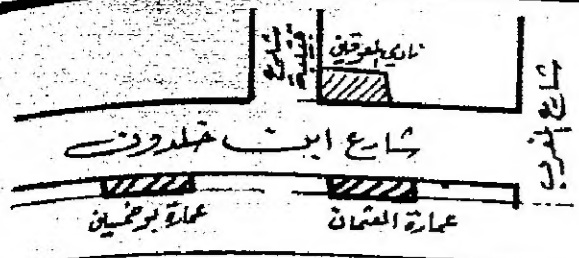 نادي المعوقين
شارع
قتيبة
شارع المغرب
شارع ابن خلدون
عمارة بوخمسين
عمارة العثمان